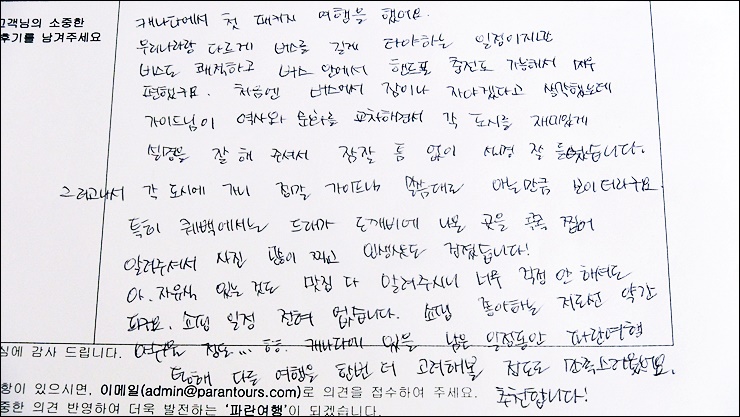 고객님의 소중한
후기를 남겨주세요
캐나다에서 첫 패키지 여행을 했어요.
우리나라랑 다르게 버스를 길게 타야하는 일정이지만
버스도 쾌적하고 버스 안에서 핸드폰 충전도 가능해서 매우
편했구요. 처음엔 버스에서 잠이나 자야겠다고 생각했는데
가이드님이 역사와 문화를 교차해면서 각 도시를 재미있게
설명을 잘 해 주셔서 잠잘 틈 없이 설명 잘 들었습니다.
그러고나서 각 도시에 가니 진짜 가이드님 말씀대로 아는만큼 보이더라구요.
특히 퀘백에서는 드라마 도깨비에 나온 곳을 콕콕 찝어
알려주셔서 사진 많이 찍고 인생샷도 건졌습니다!
아, 자유식 있는 것도 맛집 다 알려주시니 너무 걱정 안 해셔도
되구요. 쇼핑 일정 전혀 없습니다. 쇼핑 좋아하는 저로선 약간
아쉬울 정도... ㅎㅎ. 캐나다에 있을 남은 일정동안 파란여행
통해 다른 여행을 한번 더 고려해볼 정도로 만족스러웠어요.
추천합니다!
심에 감사 드립니다.
항이 있으시면, 이메일(admin@parantours.com)로 의견을 접수하여 주세요.
중한 의견 반영하여 더욱 발전하는 '파란여행'이 되겠습니다.